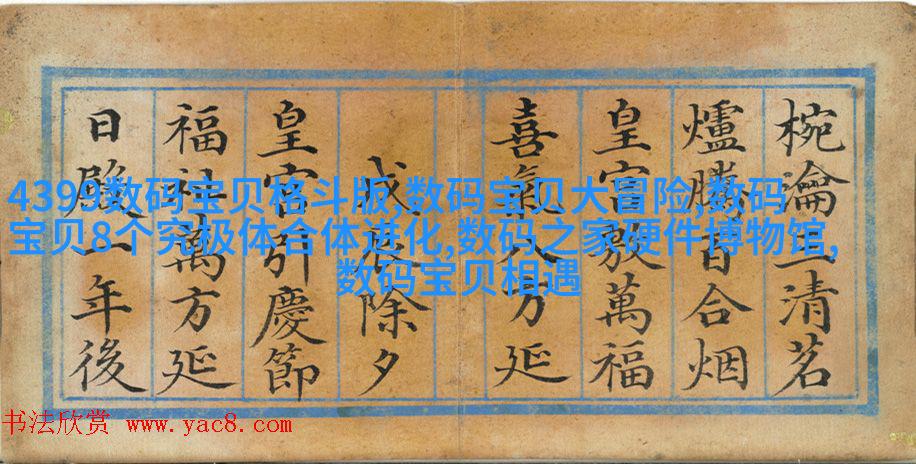 椀瀹一清茗
爐騰百合烟
皇宫敷萬福
喜氣八方延
戊辰除夕
皇宫引慶節
福祉萬方延
日一年後
4399数码宝贝格斗版,数码宝贝大冒险,数码
宝贝8个究极体合体进化,数码之家硬件博物馆,
数码宝贝相遇
书法欣赏 www.yac8.com